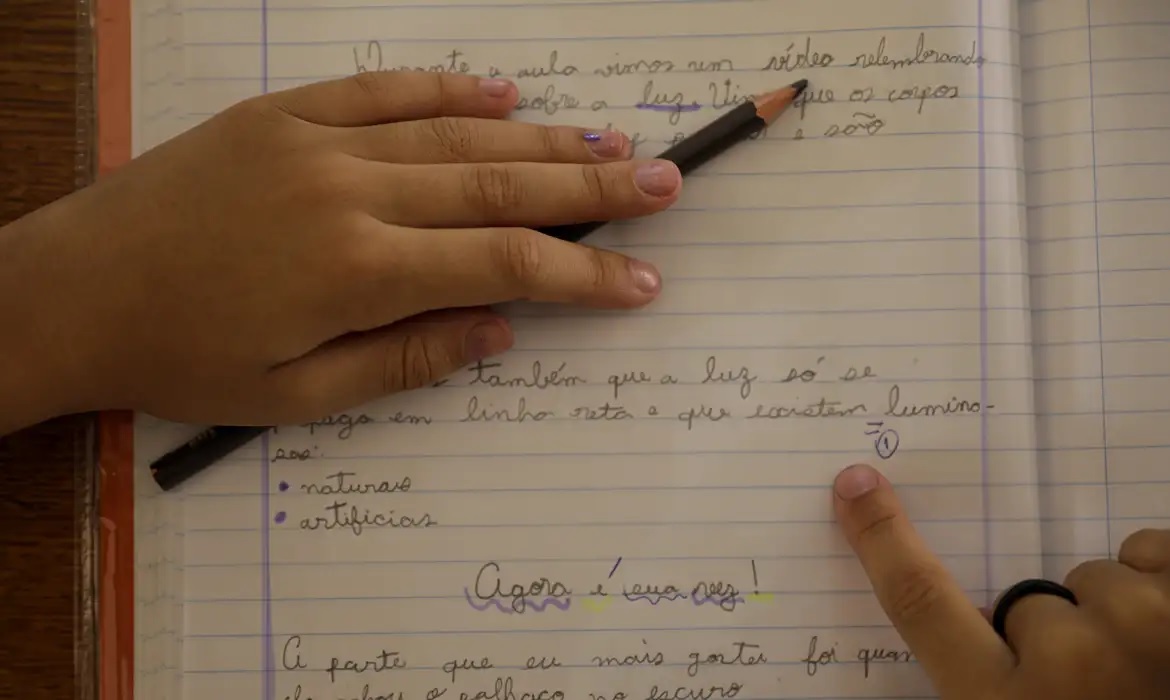 Durante a aula vimos um vídeo relembrando
sobre a luz. que os corpos
e são
também que a luz só se
em linha reta e que existem lumino-
sas:
• naturais
• artificias
1
Agora é sua vez!
A parte que eu mais gostei foi
o palhaço no escuro